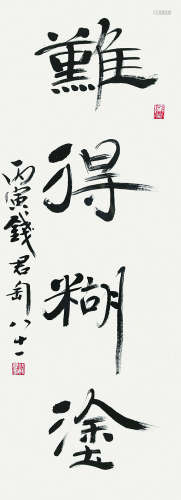 難得糊塗
丙寅錢君匋八十一